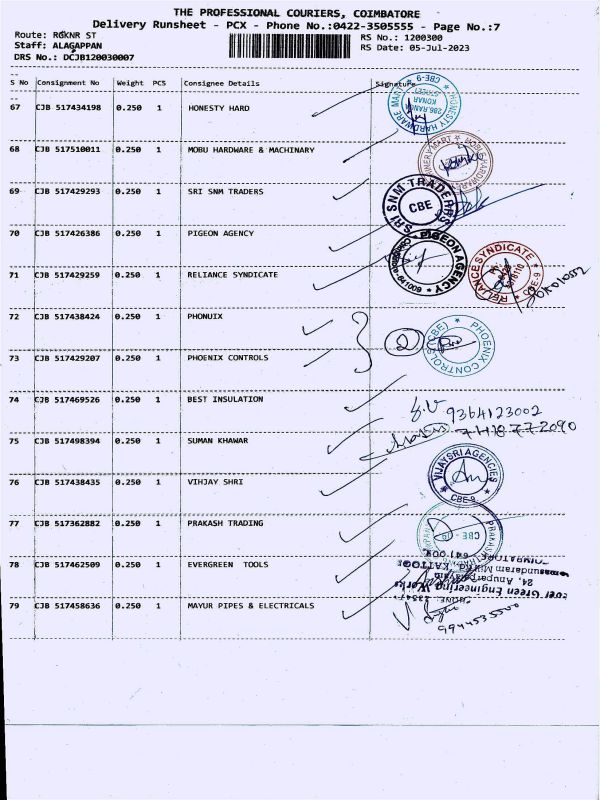 THE PROFESSIONAL COURIERS, COIMBATORE
Delivery Runsheet - PCX - Phone No.:0422-3505555 - Page No.:7
Route: RGKNR ST
RS No.: 1200300
Staff: ALAGAPPAN
RS Date: 05-Jul-2023
DRS No.: DCJB120030007
S No Consignment No Weight PCS Consignee Details Signature
67 CJB 517434198 0.250 1 HONESTY HARD
HONESTY HARDWARE MART CBE-9
68 CJB 517510011 0.250 1 MOBU HARDWARE & MACHINARY
69 CJB 517429293 0.250 1 SRI SNM TRADERS
SRI SNM TRADERS CBE
70 CJB 517426386 0.250 1 PIGEON AGENCY
PIGEON AGENCY
71 CJB 517429259 0.250 1 RELIANCE SYNDICATE
RELIANCE SYNDICATE CBE-9
72 CJB 517438424 0.250 1 PHONUIX
2
73 CJB 517429207 0.250 1 PHOENIX CONTROLS
PHOENIX CONTROLS (CBE)
74 CJB 517469526 0.250 1 BEST INSULATION
9364123002
75 CJB 517498394 0.250 1 SUMAN KHAWAR
76 CJB 517438435 0.250 1 VIHJAY SHRI
VIJAYSRI AGENCIES CBE-9
77 CJB 517362882 0.250 1 PRAKASH TRADING
78 CJB 517462509 0.250 1 EVERGREEN TOOLS
24, Anupar
Green Engineering Works
79 CJB 517458636 0.250 1 MAYUR PIPES & ELECTRICALS
9944535500